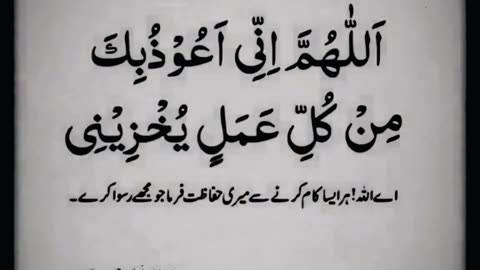 اَللّٰهُمَّ اِنِّی اَعُوْذُبِكَ
مِنْ كُلِّ عَمَلٍ يُخْزِيْنِی
اے اللہ! ہر ایسا کام کرنے سے میری حفاظت فرما جو مجھے رسوا کرے۔